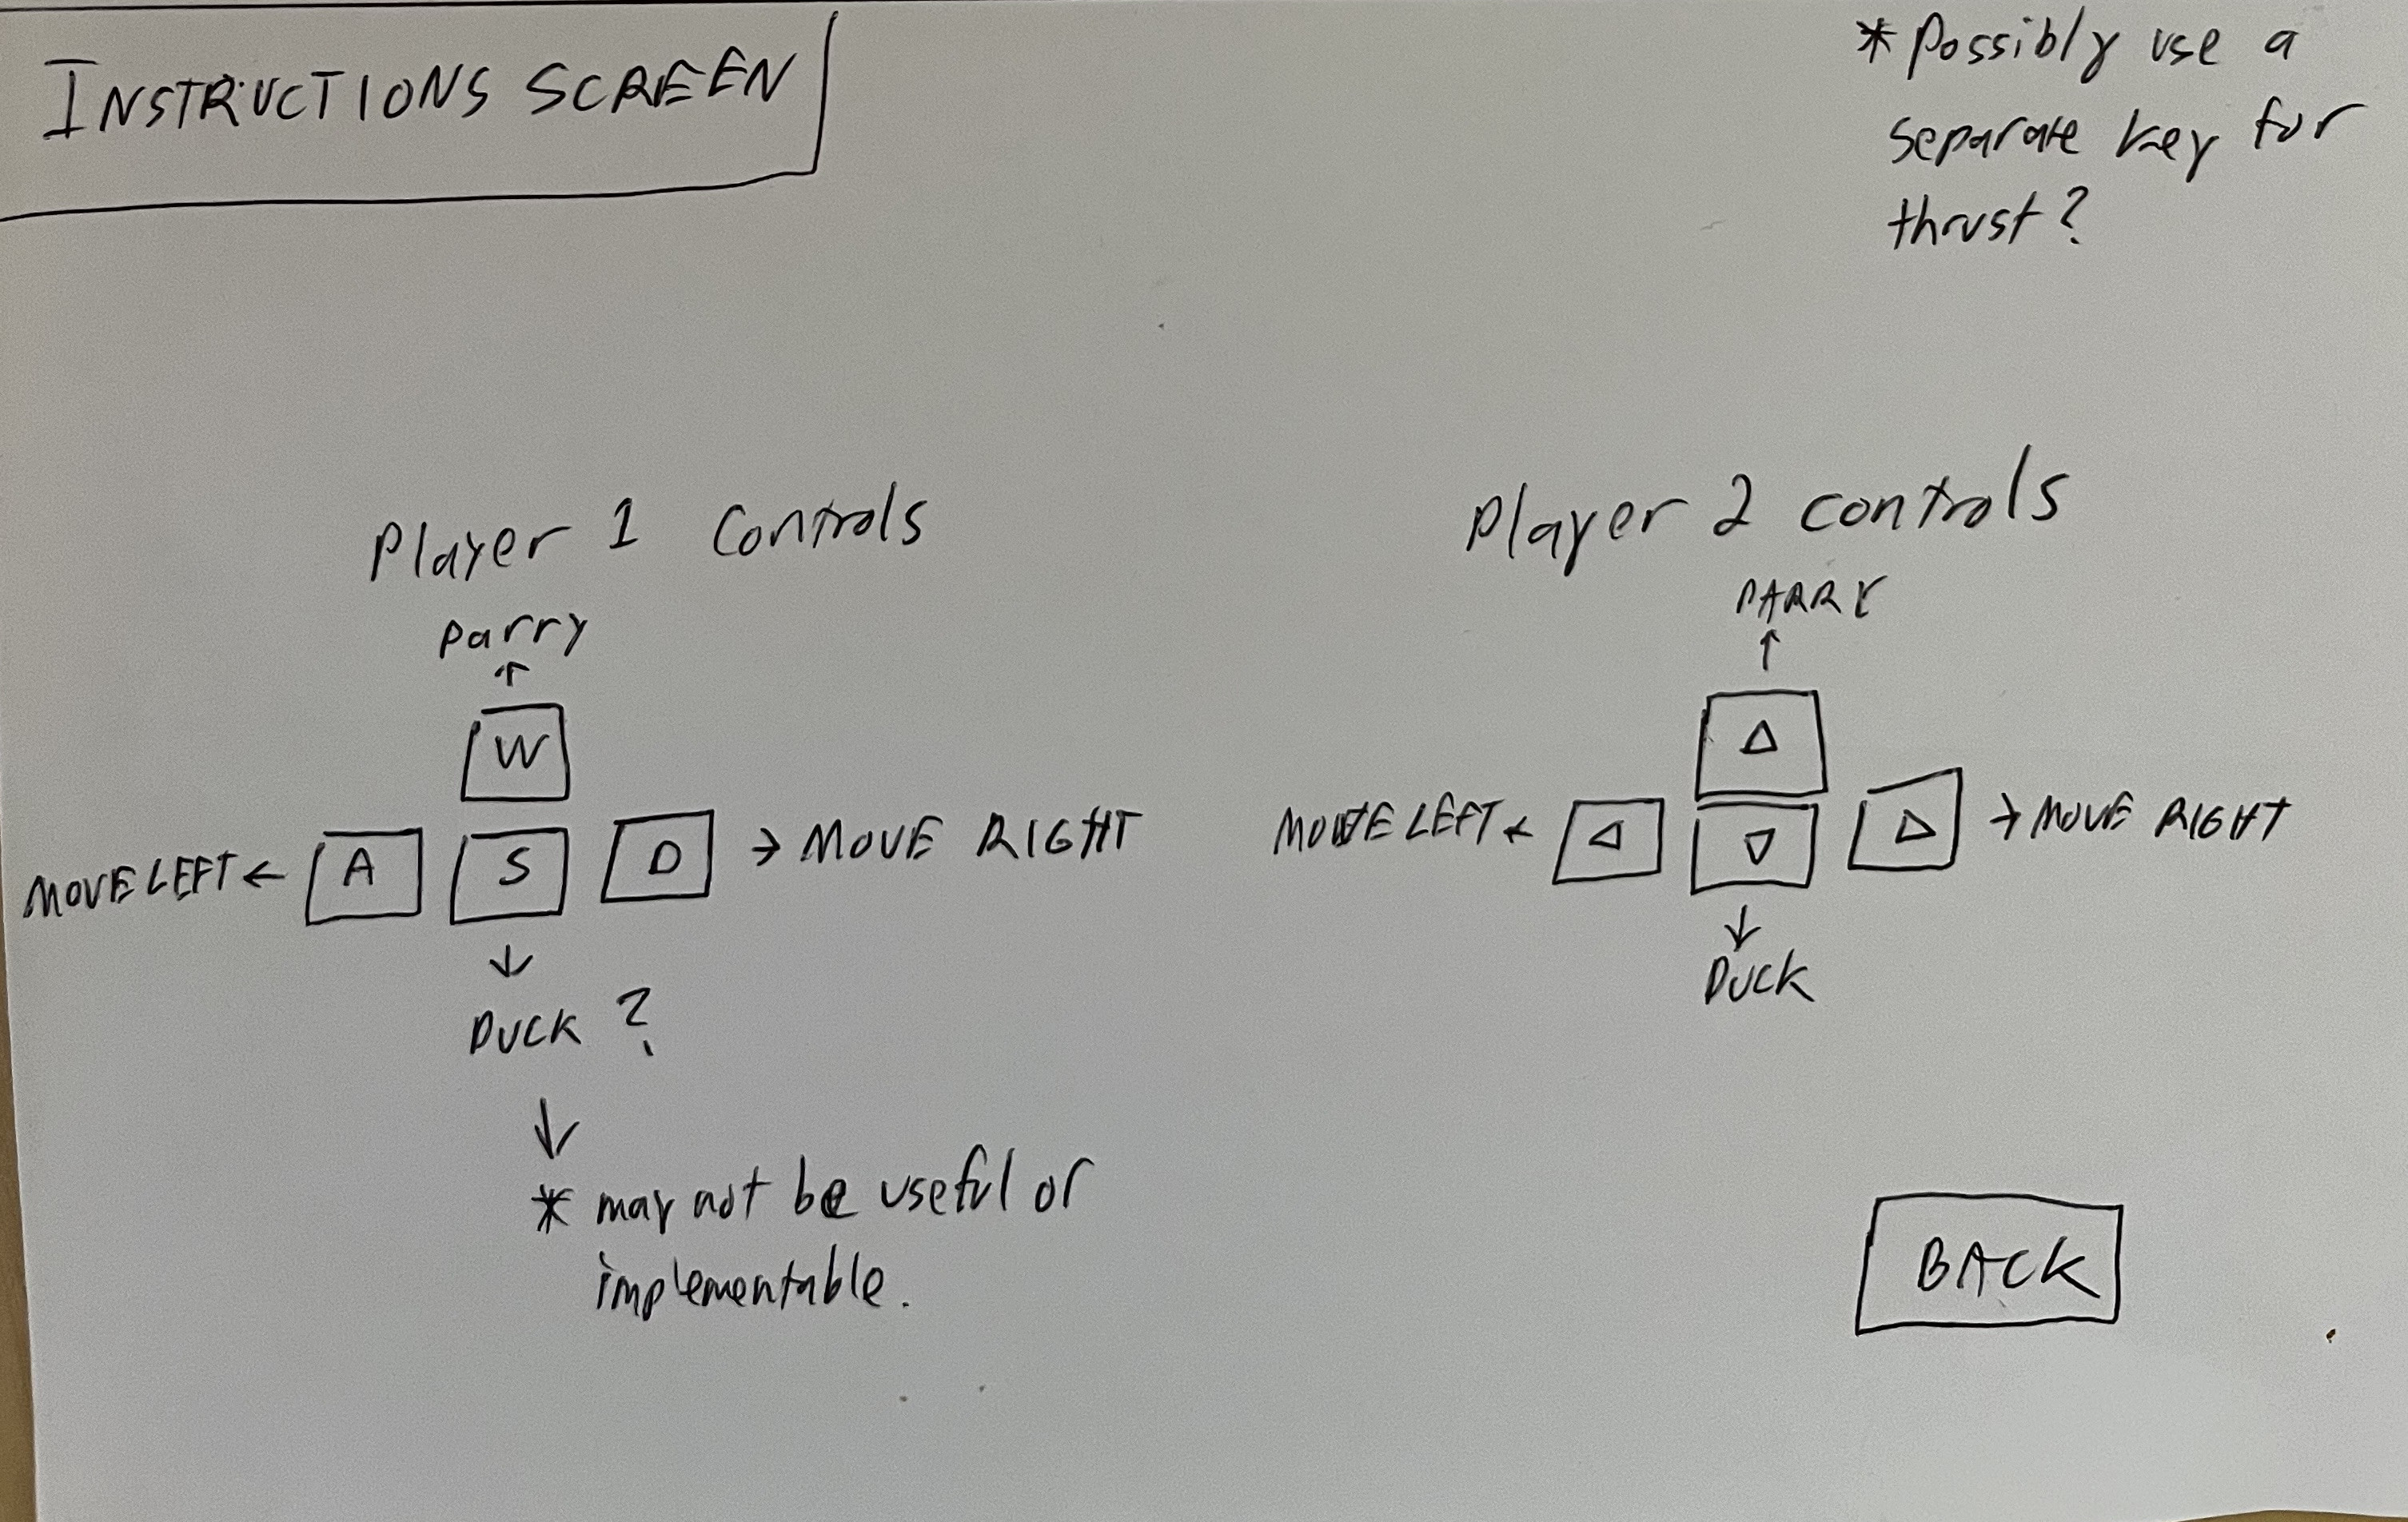 INSTRUCTIONS SCREEN
* Possibly use a
separate key for
thrust?
Player 1 Controls
Parry
↑
W
MOVE LEFT ← A S D → MOVE RIGHT
↓
DUCK ?
↓
* may not be useful or
implementable.
Player 2 controls
PARRY
↑
△
MOVE LEFT ← ◁ ▽ ▷ → MOVE RIGHT
↓
DUCK
BACK